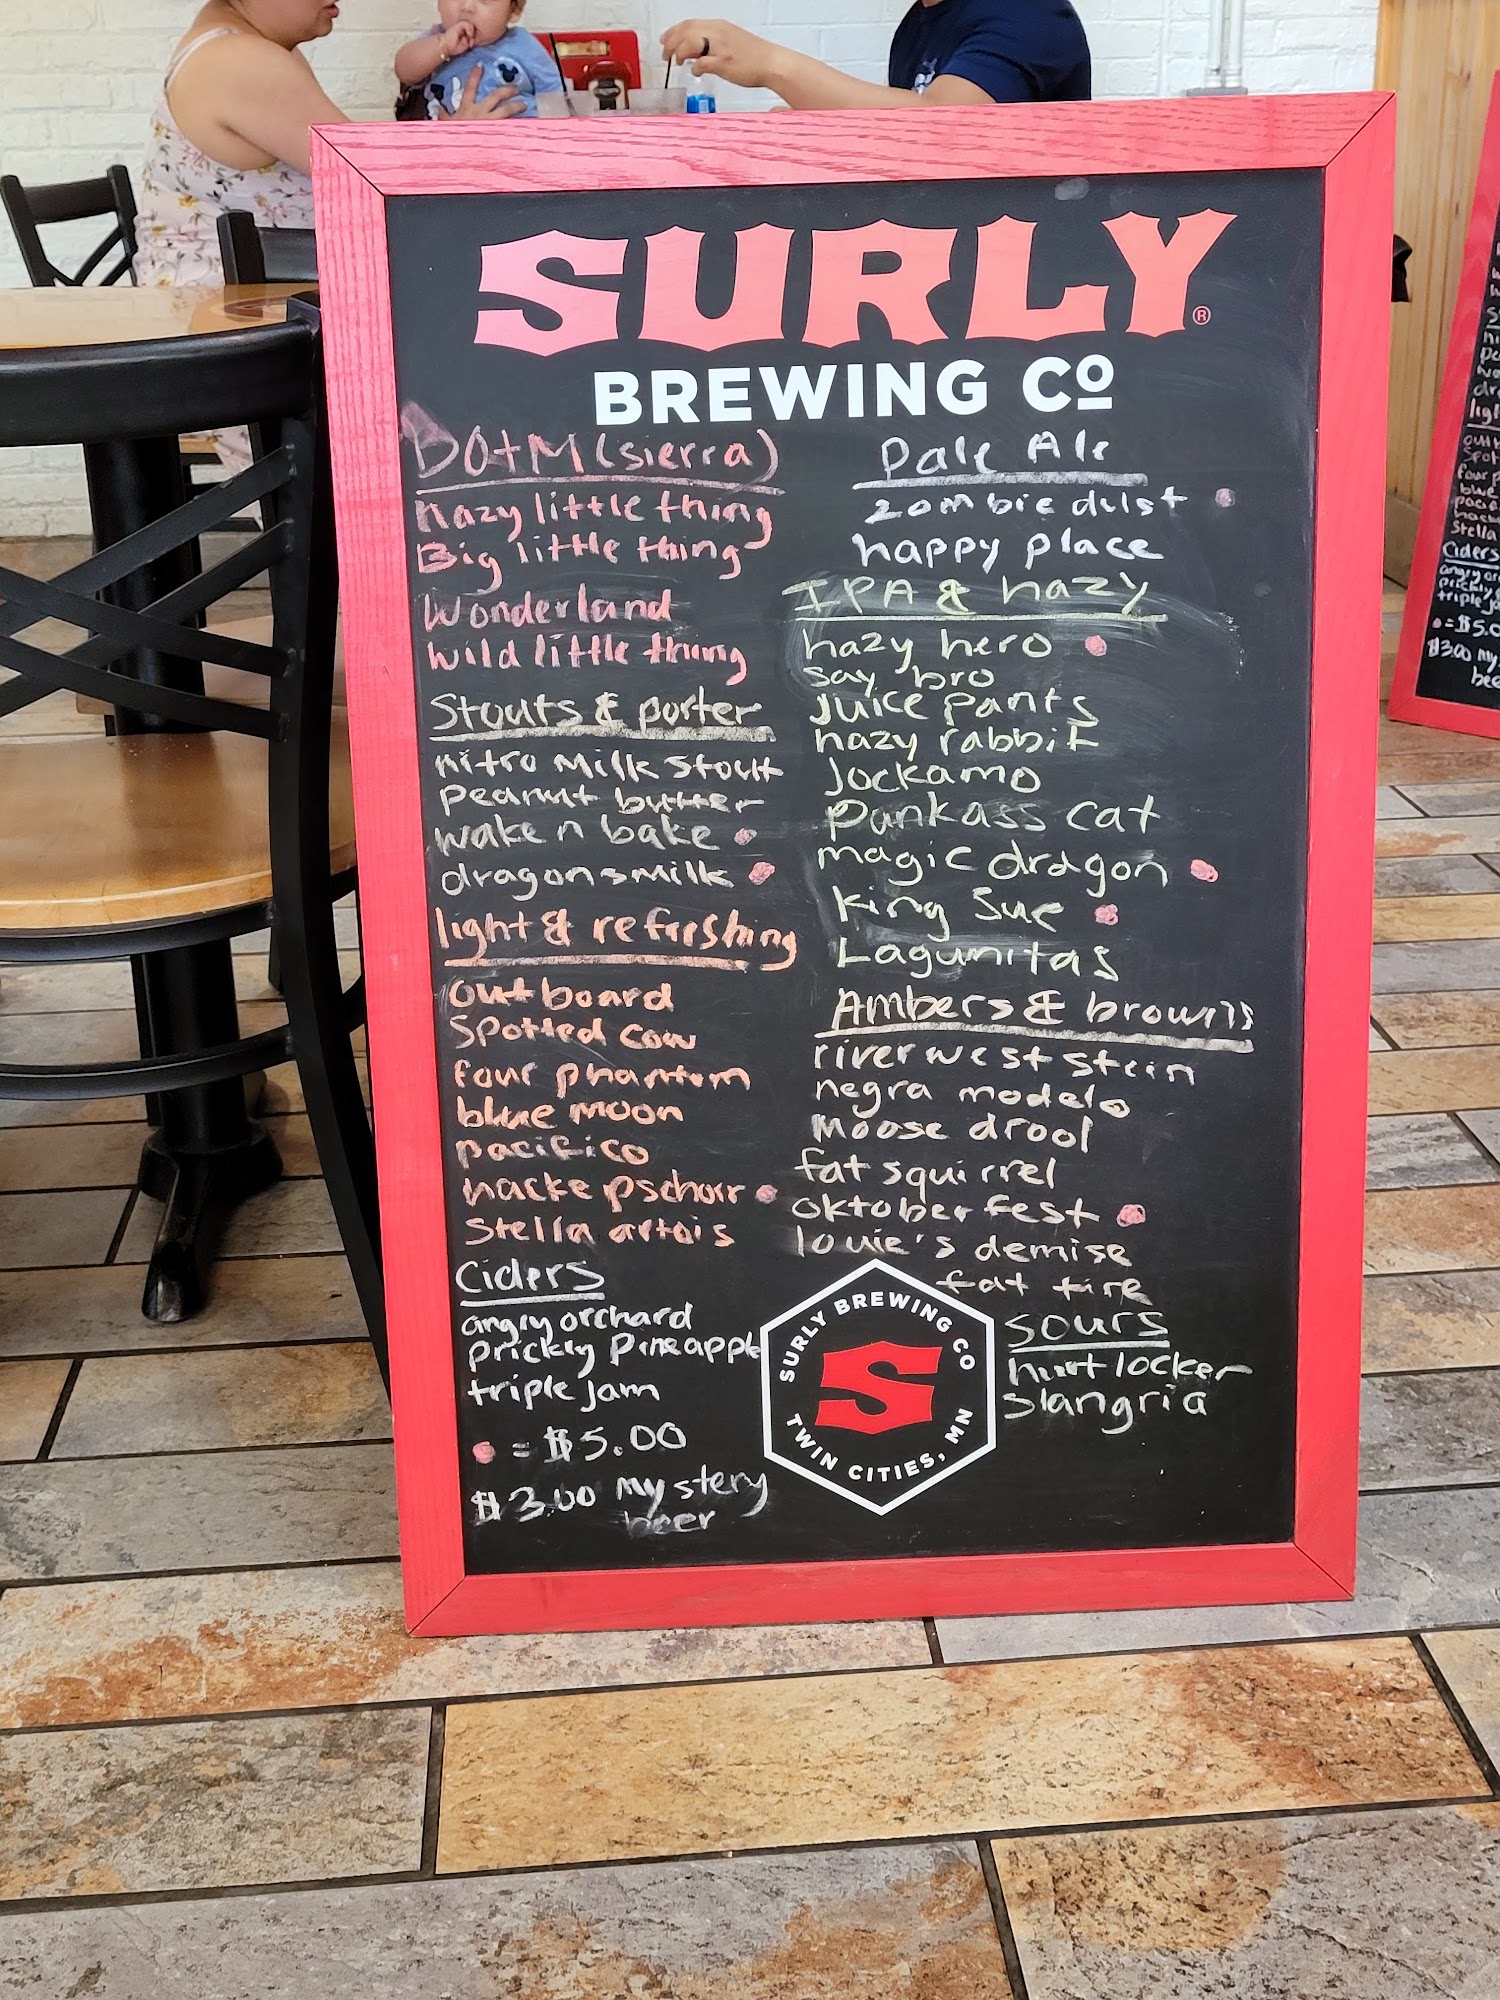 SURLY®
BREWING Cº
BOTM (sierra)
hazy little thing
Big little thing
Wonderland
wild little thing
Stouts & porter
nitro milk stout
peanut butter
wake n bake
dragonsmilk
light & refreshing
outboard
Spotted cow
four phantom
blue moon
pacifico
hacke pschorr
Stella artois
Ciders
angry orchard
prickly pineapple
triple jam
= $5.00
$3.00 mystery
beer
Pale Ale
zombie dust
happy place
IPA & hazy
hazy hero
say bro
Juice pants
hazy rabbit
Jockamo
Punkass cat
magic dragon
King Sue
Lagunitas
Ambers & browns
riverwest stein
negra modelo
Moose drool
fat squirrel
Oktoberfest
louie's demise
fat tire
SURLY BREWING CO
S
TWIN CITIES, MN
Sours
hurt locker
Slangria
light
Spot
four p
blue
Stella
Ciders
angry or
triple ja
$3.00 my
bee